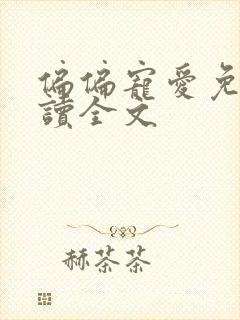 偏偏寵愛免
讀全文
赫茶茶